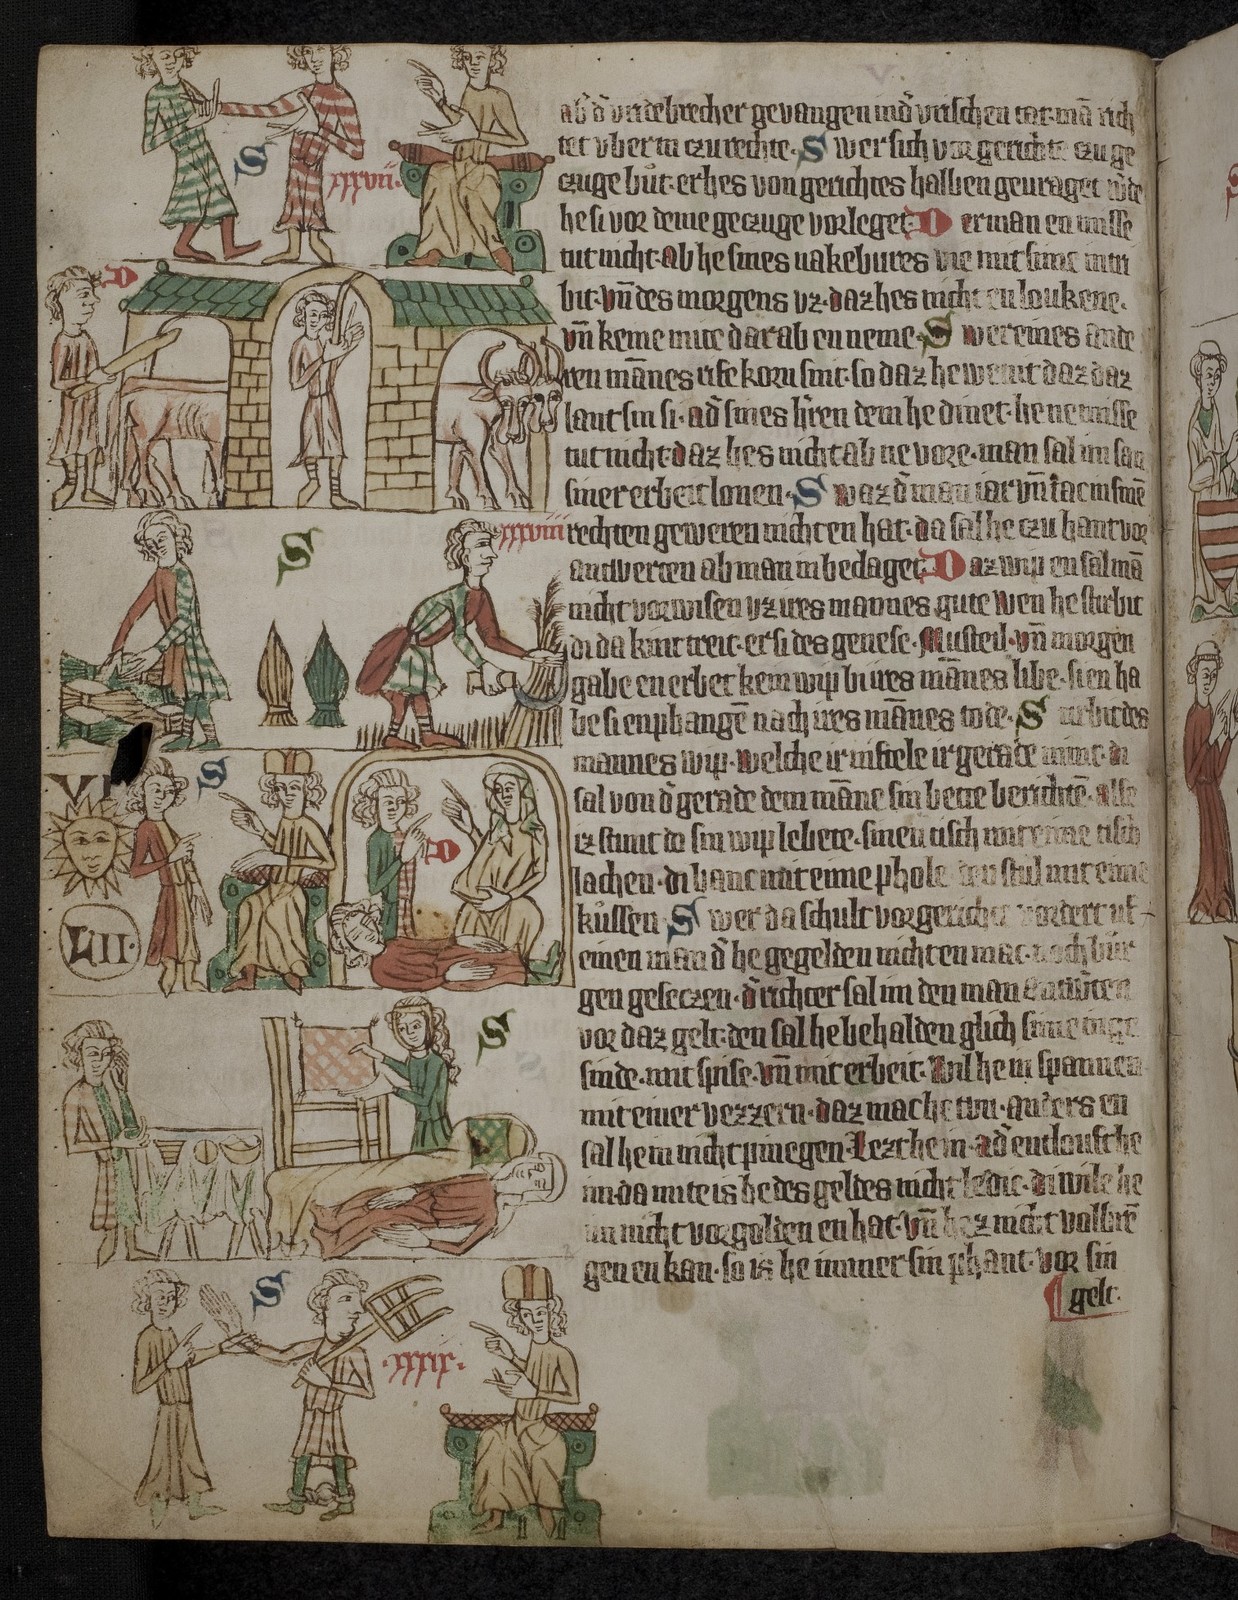 S
xxxvii.
D
S
xxxviii
VI
S
LII.
D
S
S
xxxix.
ab d᷑ vrideb᷑recher gevangen
tet vber in czu rechte. S wer sich vor gerichte czu ge
czuge but. er hes von gerichtes halben gevraget
he si vor deme geczuge vorleget. D er man en misse
tut nicht. ab he sines nakebures vie mit sime intri
bit. vn̄ des morgens vz. daz hes nicht en loukene.
vn̄ keine mite dar ab en neme. S wer eines ande
ren mānes rife korn snit. so daz he wenit daz daz
lant sin si. ad᷑ sines h᷑ren dem he dinet. he ne misse
tut nicht. daz hes nicht ab ne vore. man sal im san
siner erbeit lonen. S waz d᷑ man iar vn̄ tac in sinē
rechten geweren nicht en hat. da sal he czu hant vor
andwerten ab man in bedaget. D az wip en sal mā
nicht vorwisen vz ires mannes gute wen he stirbit
di da kint treit. er si des genese. Musteil. vn̄ morgen
gabe en erbet kein wip bi ires mānes libe. si en ha
be si enphangē nach ires mānes tode. S tirbit des
mannes wip. welche ir niftele ir gerade nimt. di
sal von d᷑ gerade dem māne sin bette berichtē. alse
iz stunt do sin wip lebete. sinen tisch mit eime tisch
lachen. di banc mit eime phole. den stul mit eime
kussen S wer da schult vor gerichte vordert uf
einen man d᷑ he gegelden nicht en mac. noch bur
gen geseczen. d᷑ richter sal im den man
vor daz gelt. den sal he behalden glich sime inge
sinde. mit spise. vn̄ mit erbeit. Wil he in spannen
mit einer vezzern. daz mac he tun. anders en
sal he in nicht pinegen. Lezt he in. ad᷑ entlouft he
im. da mite is he des geldes nicht ledic. di wile he
im nicht vorgolden en hat. vn̄ hez nicht volbrē
gen en kan. so is he immer sin phant. vor sin
gelt.